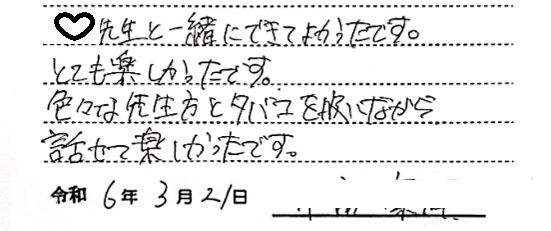 ♡先生と一緒にできてよかったです。
とても楽しかったです。
色々な先生方とタバコを吸いながら
話せて楽しかったです。
令和 6年 3月21日